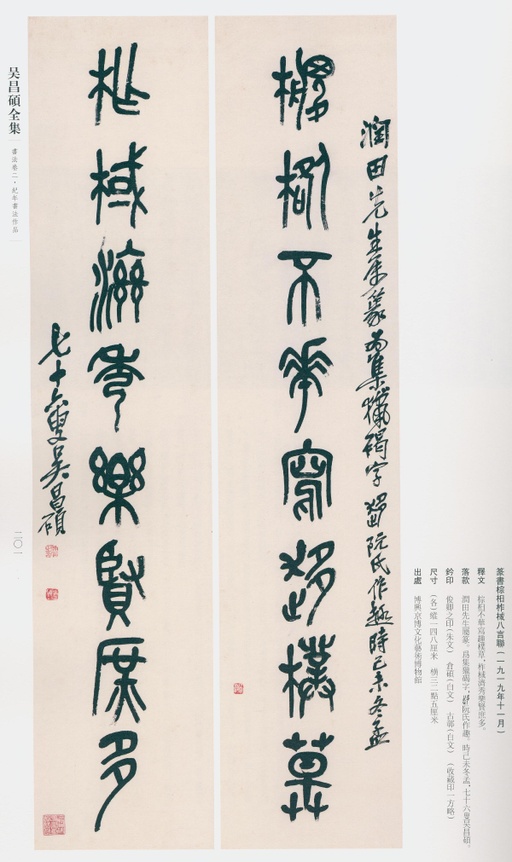 吴昌碩全集
書法卷二·紀年書法作品
二〇一
篆書棕柏柞棫八言聯(一九一九年十一月)
釋文 棕柏不華寫趍樸𫟍，柞棫濟秀樂賢庶多。
落款 潤田先生屬篆。爲集獵碣字，趍阮氏作趣。時己未冬孟，七十六叟吴昌碩。
鈐印 俊卿之印(朱文) 倉碩(白文) 古鄣(白文) (收藏印一方略)
尺寸 (各)縱一四八厘米 横三二點五厘米
出處 博興京博文化藝術博物館
潤田先生屬篆爲集獵碣字趍阮氏作趣時己未冬孟
不華寫趍樸
柞棫濟秀樂賢庶多
七十六叟吴昌碩